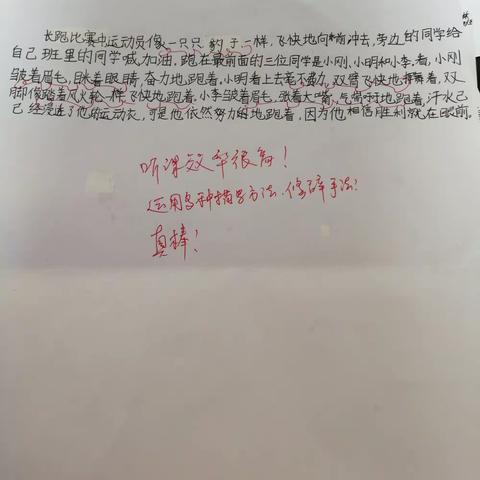 长跑比赛中运动员像一只只豹子一样，飞快地向前冲去，旁边的同学给
自己班里的同学喊加油。跑在最前面的三位同学是小刚、小明和小李。看，小刚
皱着眉毛，眯着眼睛，奋力地跑着。小明看上去毫不费力，双臂飞快地摆着，双
脚像踏着风火轮一样飞快地跑着。小李皱着眉毛，张着大嘴，气喘吁吁地跑着，汗水己
己经浸透了他的运动衣，可是他依然努力的地跑着，因为他相信胜利就在眼前。
听课效率很高！
运用多种描写方法、修辞手法！
真棒！